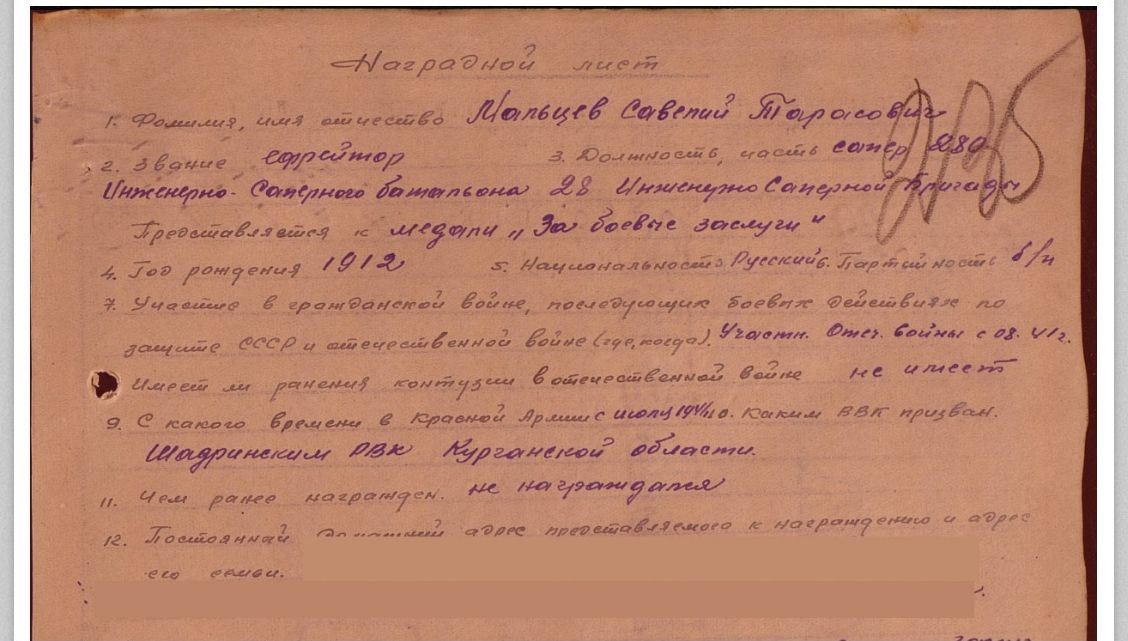 Наградной лист
1. Фамилия, имя отчество Мальцев Савелий Тарасович
2. Звание ефрейтор 3. Должность, часть сапер 280
Инженерно-Саперного батальона 28 Инженерно Саперной Бригады
Представляется к медали „За боевые заслуги"
4. Год рождения 1912 5. Национальность Русский 6. Партийность б/п
7. Участие в гражданской войне, последующих боевых действиях по
защите СССР и отечественной войне (где, когда). Участн. Отеч. войны с 08.41г.
Имеет ли ранения контузии в отечественной войне не имеет
9. С какого времени в Красной Армии с июля 1941 10. Каким ВВК призван.
Шадринским РВК Курганской области.
11. Чем ранее награжден. не награждался
12. Постоянный домашний адрес представляемого к награждению и адрес
его семьи.